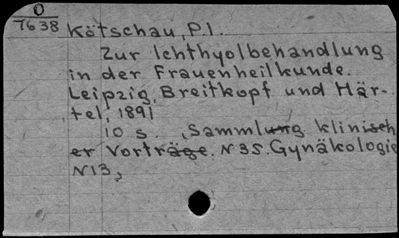 O
7638
Kötschau, P.I.
Zur Ichthyolbehandlung
in der Frauenheilkunde.
Leipzig, Breitkopf und Här-
tel, 1891
10 s. (Sammlung klinisch
er Vorträge. N 35. Gynäkologie
N13,